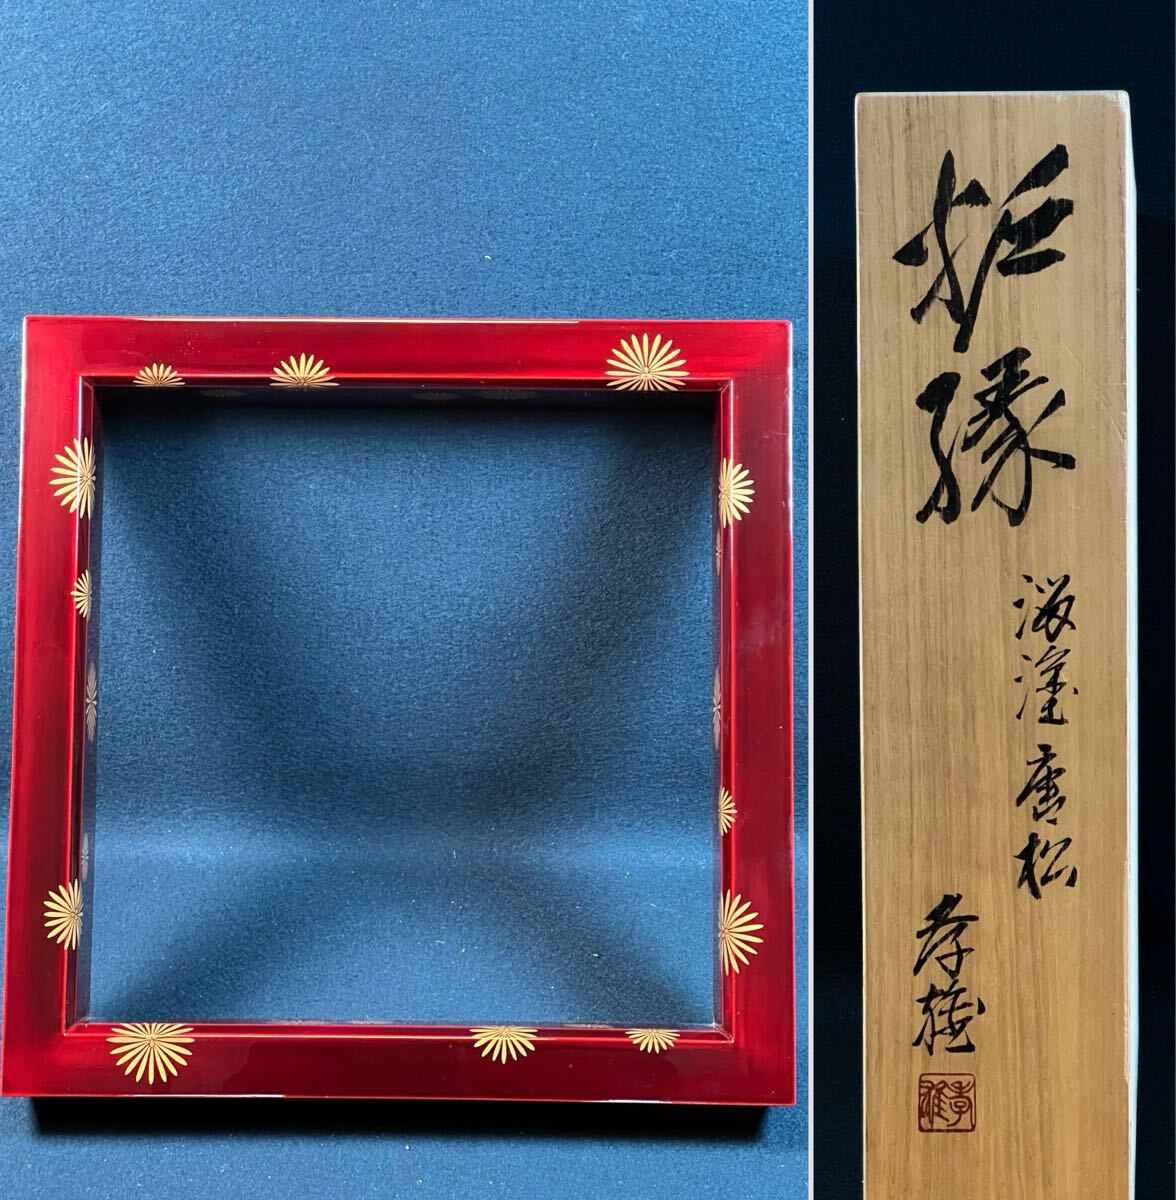 炉縁
溜塗唐松
孝雄
孝雄